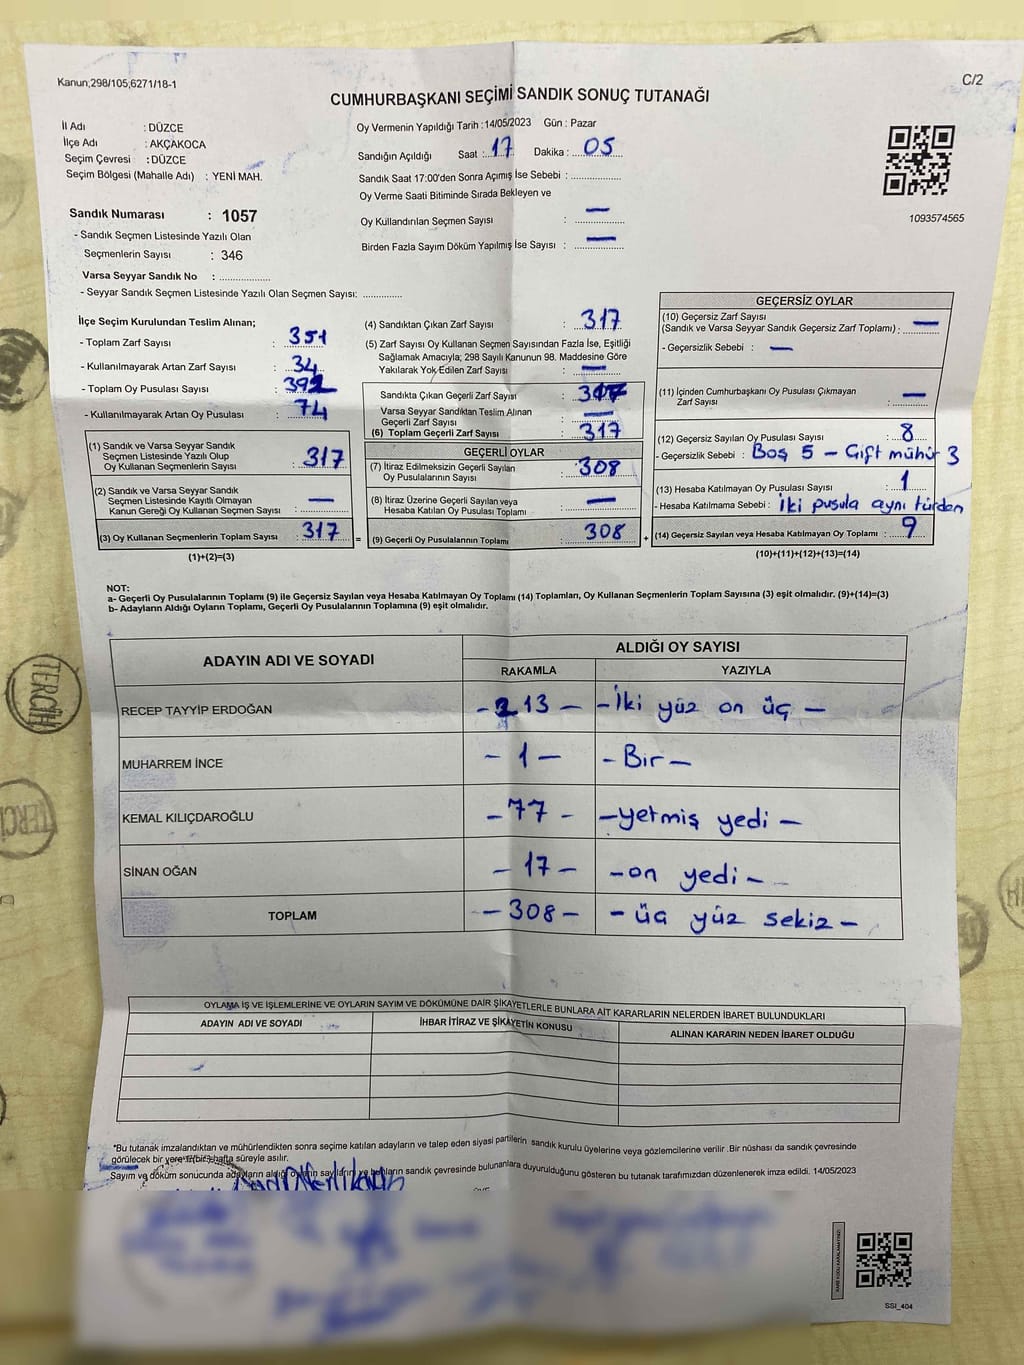 Kanun;298/105;6271/18-1
C/2
CUMHURBAŞKANI SEÇİMİ SANDIK SONUÇ TUTANAĞI
İl Adı : DÜZCE
İlçe Adı : AKÇAKOCA
Seçim Çevresi : DÜZCE
Seçim Bölgesi (Mahalle Adı) : YENİ MAH.
Sandık Numarası : 1057
- Sandık Seçmen Listesinde Yazılı Olan
Seçmenlerin Sayısı : 346
Varsa Seyyar Sandık No : ..................
- Seyyar Sandık Seçmen Listesinde Yazılı Olan Seçmen Sayısı: ..............
Oy Vermenin Yapıldığı Tarih : 14/05/2023 Gün : Pazar
Sandığın Açıldığı Saat : 17 Dakika : 05
Sandık Saat 17:00'den Sonra Açımış İse Sebebi : ..................
Oy Verme Saati Bitiminde Sırada Bekleyen ve
Oy Kullandırılan Seçmen Sayısı : —
Birden Fazla Sayım Döküm Yapılmış İse Sayısı : —
1093574565
İlçe Seçim Kurulundan Teslim Alınan;
- Toplam Zarf Sayısı : 351
- Kullanılmayarak Artan Zarf Sayısı : 34
- Toplam Oy Pusulası Sayısı : 392
- Kullanılmayarak Artan Oy Pusulası : 74
(1) Sandık ve Varsa Seyyar Sandık
Seçmen Listesinde Yazılı Olup
Oy Kullanan Seçmenlerin Sayısı : 317
(2) Sandık ve Varsa Seyyar Sandık
Seçmen Listesinde Kayıtlı Olmayan
Kanun Gereği Oy Kullanan Seçmen Sayısı : —
(3) Oy Kullanan Seçmenlerin Toplam Sayısı : 317 =
(1)+(2)=(3)
(4) Sandıktan Çıkan Zarf Sayısı : 317
(5) Zarf Sayısı Oy Kullanan Seçmen Sayısından Fazla İse, Eşitliği
Sağlamak Amacıyla; 298 Sayılı Kanunun 98. Maddesine Göre
Yakılarak Yok Edilen Zarf Sayısı : —
Sandıkta Çıkan Geçerli Zarf Sayısı : 317
Varsa Seyyar Sandıktan Teslim Alınan
Geçerli Zarf Sayısı : —
(6) Toplam Geçerli Zarf Sayısı : 317
GEÇERLİ OYLAR
(7) İtiraz Edilmeksizin Geçerli Sayılan
Oy Pusulalarının Sayısı : 308
(8) İtiraz Üzerine Geçerli Sayılan veya
Hesaba Katılan Oy Pusulası Toplamı : —
(9) Geçerli Oy Pusulalarının Toplamı : 308 +
GEÇERSİZ OYLAR
(10) Geçersiz Zarf Sayısı
(Sandık ve Varsa Seyyar Sandık Geçersiz Zarf Toplamı) : —
- Geçersizlik Sebebi : —
(11) İçinden Cumhurbaşkanı Oy Pusulası Çıkmayan
Zarf Sayısı : —
(12) Geçersiz Sayılan Oy Pusulası Sayısı : 8
- Geçersizlik Sebebi : Boş 5 - Çift mühür 3
(13) Hesaba Katılmayan Oy Pusulası Sayısı : 1
- Hesaba Katılmama Sebebi : İki pusula aynı türden
(14) Geçersiz Sayılan veya Hesaba Katılmayan Oy Toplamı : 9
(10)+(11)+(12)+(13)=(14)
NOT:
a- Geçerli Oy Pusulalarının Toplamı (9) ile Geçersiz Sayılan veya Hesaba Katılmayan Oy Toplamı (14) Toplamları, Oy Kullanan Seçmenlerin Toplam Sayısına (3) eşit olmalıdır. (9)+(14)=(3)
b- Adayların Aldığı Oyların Toplamı, Geçerli Oy Pusulalarının Toplamına (9) eşit olmalıdır.
ADAYIN ADI VE SOYADI
ALDIĞI OY SAYISI
RAKAMLA YAZIYLA
RECEP TAYYİP ERDOĞAN - 213 - - İki yüz on üç -
MUHARREM İNCE - 1 - - Bir -
KEMAL KILIÇDAROĞLU - 77 - - yetmiş yedi -
SİNAN OĞAN - 17 - - on yedi -
TOPLAM - 308 - - üç yüz sekiz -
OYLAMA İŞ VE İŞLEMLERİNE VE OYLARIN SAYIM VE DÖKÜMÜNE DAİR ŞİKAYETLERLE BUNLARA AİT KARARLARIN NELERDEN İBARET BULUNDUKLARI
ADAYIN ADI VE SOYADI İHBAR İTİRAZ VE ŞİKAYETİN KONUSU ALINAN KARARIN NEDEN İBARET OLDUĞU
*Bu tutanak imzalandıktan ve mühürlendikten sonra seçime katılan adayların ve talep eden siyasi partilerin sandık kurulu üyelerine veya gözlemcilerine verilir .Bir nüshası da sandık çevresinde
görülecek bir yere 1(bir) hafta süreyle asılır.
Sayım ve döküm sonucunda adayların aldığı oyların sayılarını ve bunların sandık çevresinde bulunanlara duyurulduğunu gösteren bu tutanak tarafımızdan düzenlenerek imza edildi. 14/05/2023
SSI_404
TERCİH
TERCİ